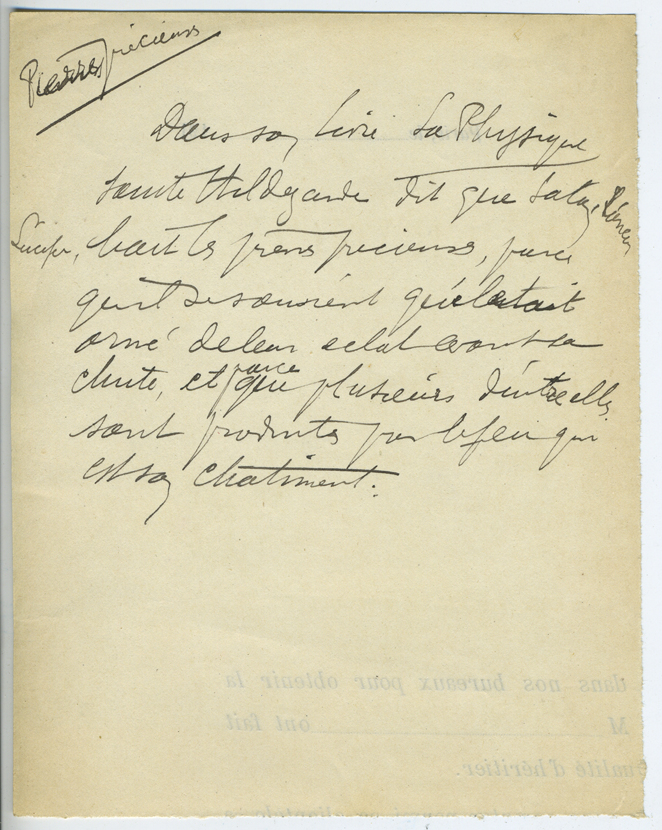 Pierres précieuses
Dans son livre La Physique
sainte Hildegarde dit que Satan,
Lucifer, hait les pierres précieuses, parce
qu'il se souvient qu'il était
orné de leur éclat avant sa
chute, et parce que plusieurs d'entre elles
sont produites par le feu qui
est son chatiment.
dans nos bureaux pour obtenir la
M ont fait
qualité d'héritier.